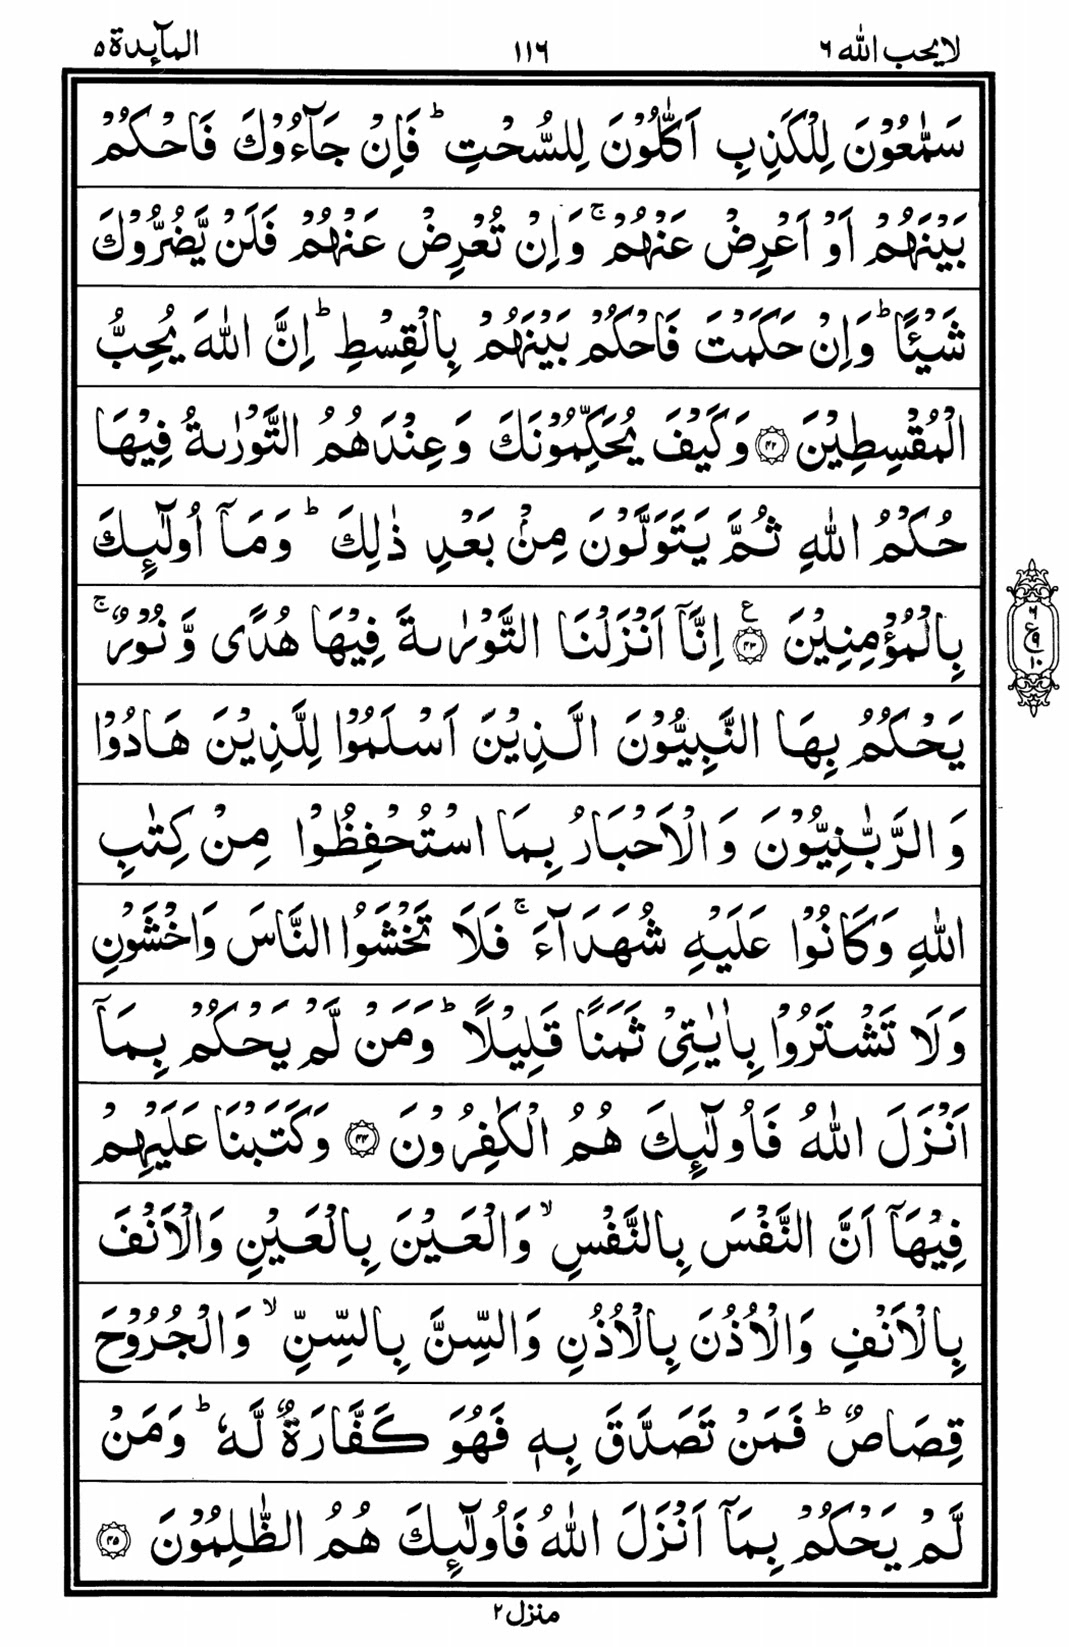 لا يحب الله ٦
١١٦
المآىِٕدة ٥
سَمّٰعُوْنَ لِلْكَذِبِ اَكّٰلُوْنَ لِلسُّحْتِ ؕ فَاِنْ جَآءُوْكَ فَاحْكُمْ
بَيْنَهُمْ اَوْ اَعْرِضْ عَنْهُمْ ۚ وَاِنْ تُعْرِضْ عَنْهُمْ فَلَنْ يَّضُرُّوْكَ
شَيْـًٔا ؕ وَاِنْ حَكَمْتَ فَاحْكُمْ بَيْنَهُمْ بِالْقِسْطِ ؕ اِنَّ اللّٰهَ يُحِبُّ
الْمُقْسِطِيْنَ ۝٤٢ وَكَيْفَ يُحَكِّمُوْنَكَ وَعِنْدَهُمُ التَّوْرٰىةُ فِيْهَا
حُكْمُ اللّٰهِ ثُمَّ يَتَوَلَّوْنَ مِنْۢ بَعْدِ ذٰلِكَ ؕ وَمَاۤ اُولٰٓىِٕكَ
بِالْمُؤْمِنِيْنَ ۝٤٣ ع اِنَّاۤ اَنْزَلْنَا التَّوْرٰىةَ فِيْهَا هُدًى وَّ نُوْرٌ ۚ
يَحْكُمُ بِهَا النَّبِيُّوْنَ الَّذِيْنَ اَسْلَمُوْا لِلَّذِيْنَ هَادُوْا
وَ الرَّبّٰنِيُّوْنَ وَالْاَحْبَارُ بِمَا اسْتُحْفِظُوْا مِنْ كِتٰبِ
اللّٰهِ وَكَانُوْا عَلَيْهِ شُهَدَآءَ ۚ فَلَا تَخْشَوُا النَّاسَ وَاخْشَوْنِ
وَلَا تَشْتَرُوْا بِاٰيٰتِيْ ثَمَنًا قَلِيْلًا ؕ وَمَنْ لَّمْ يَحْكُمْ بِمَاۤ
اَنْزَلَ اللّٰهُ فَاُولٰٓىِٕكَ هُمُ الْكٰفِرُوْنَ ۝٤٤ وَكَتَبْنَا عَلَيْهِمْ
فِيْهَاۤ اَنَّ النَّفْسَ بِالنَّفْسِ ۙ وَالْعَيْنَ بِالْعَيْنِ وَالْاَنْفَ
بِالْاَنْفِ وَالْاُذُنَ بِالْاُذُنِ وَالسِّنَّ بِالسِّنِّ ۙ وَالْجُرُوْحَ
قِصَاصٌ ؕ فَمَنْ تَصَدَّقَ بِهٖ فَهُوَ كَفَّارَةٌ لَّهٗ ؕ وَمَنْ
لَّمْ يَحْكُمْ بِمَاۤ اَنْزَلَ اللّٰهُ فَاُولٰٓىِٕكَ هُمُ الظّٰلِمُوْنَ ۝٤٥
٦
ع ٩
١٠
منزل ٢